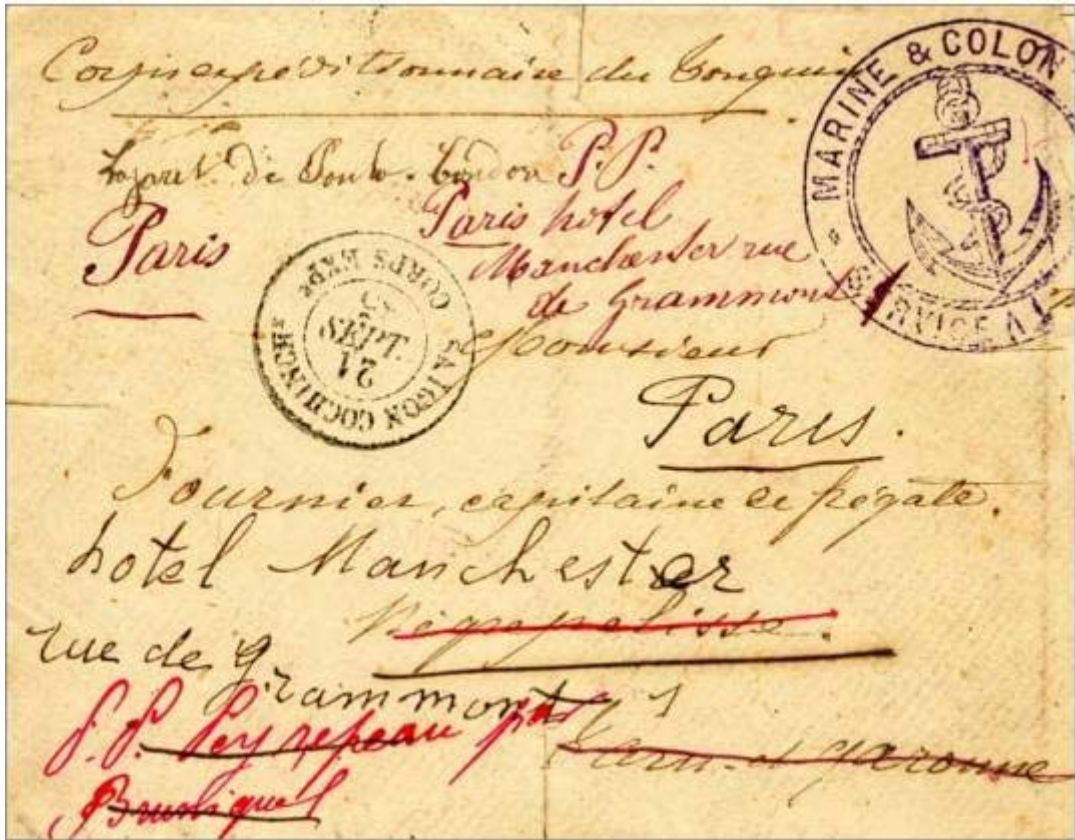 Corps expéditionnaire du Tonquin
MARINE & COLON
SERVICE A
de Poulo-Condor P. P.
Paris
Paris hotel
Manchester rue
de Grammont 1
CORPS EXPe
5E
SEPT.
17
SAIGON COCHINCHe
Monsieur
Paris.
Fournier, capitaine de frégate.
hotel Manchester
Négrepelisse.
rue de Grammont 1
P. P. Peyrepeau par
Tarn-et-garonne
Bruniquel